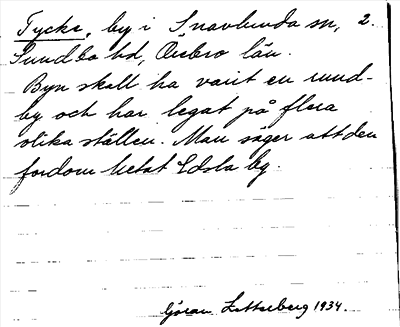 Tycke, by i Snavlunda sn, 2.
Sundbo hd, Örebro län.
Byn skall ha varit en rund-
by och har legat på flera
olika ställen. Man säger att den
fordom hetat Edsla by.
Göran Zetterberg 1934.